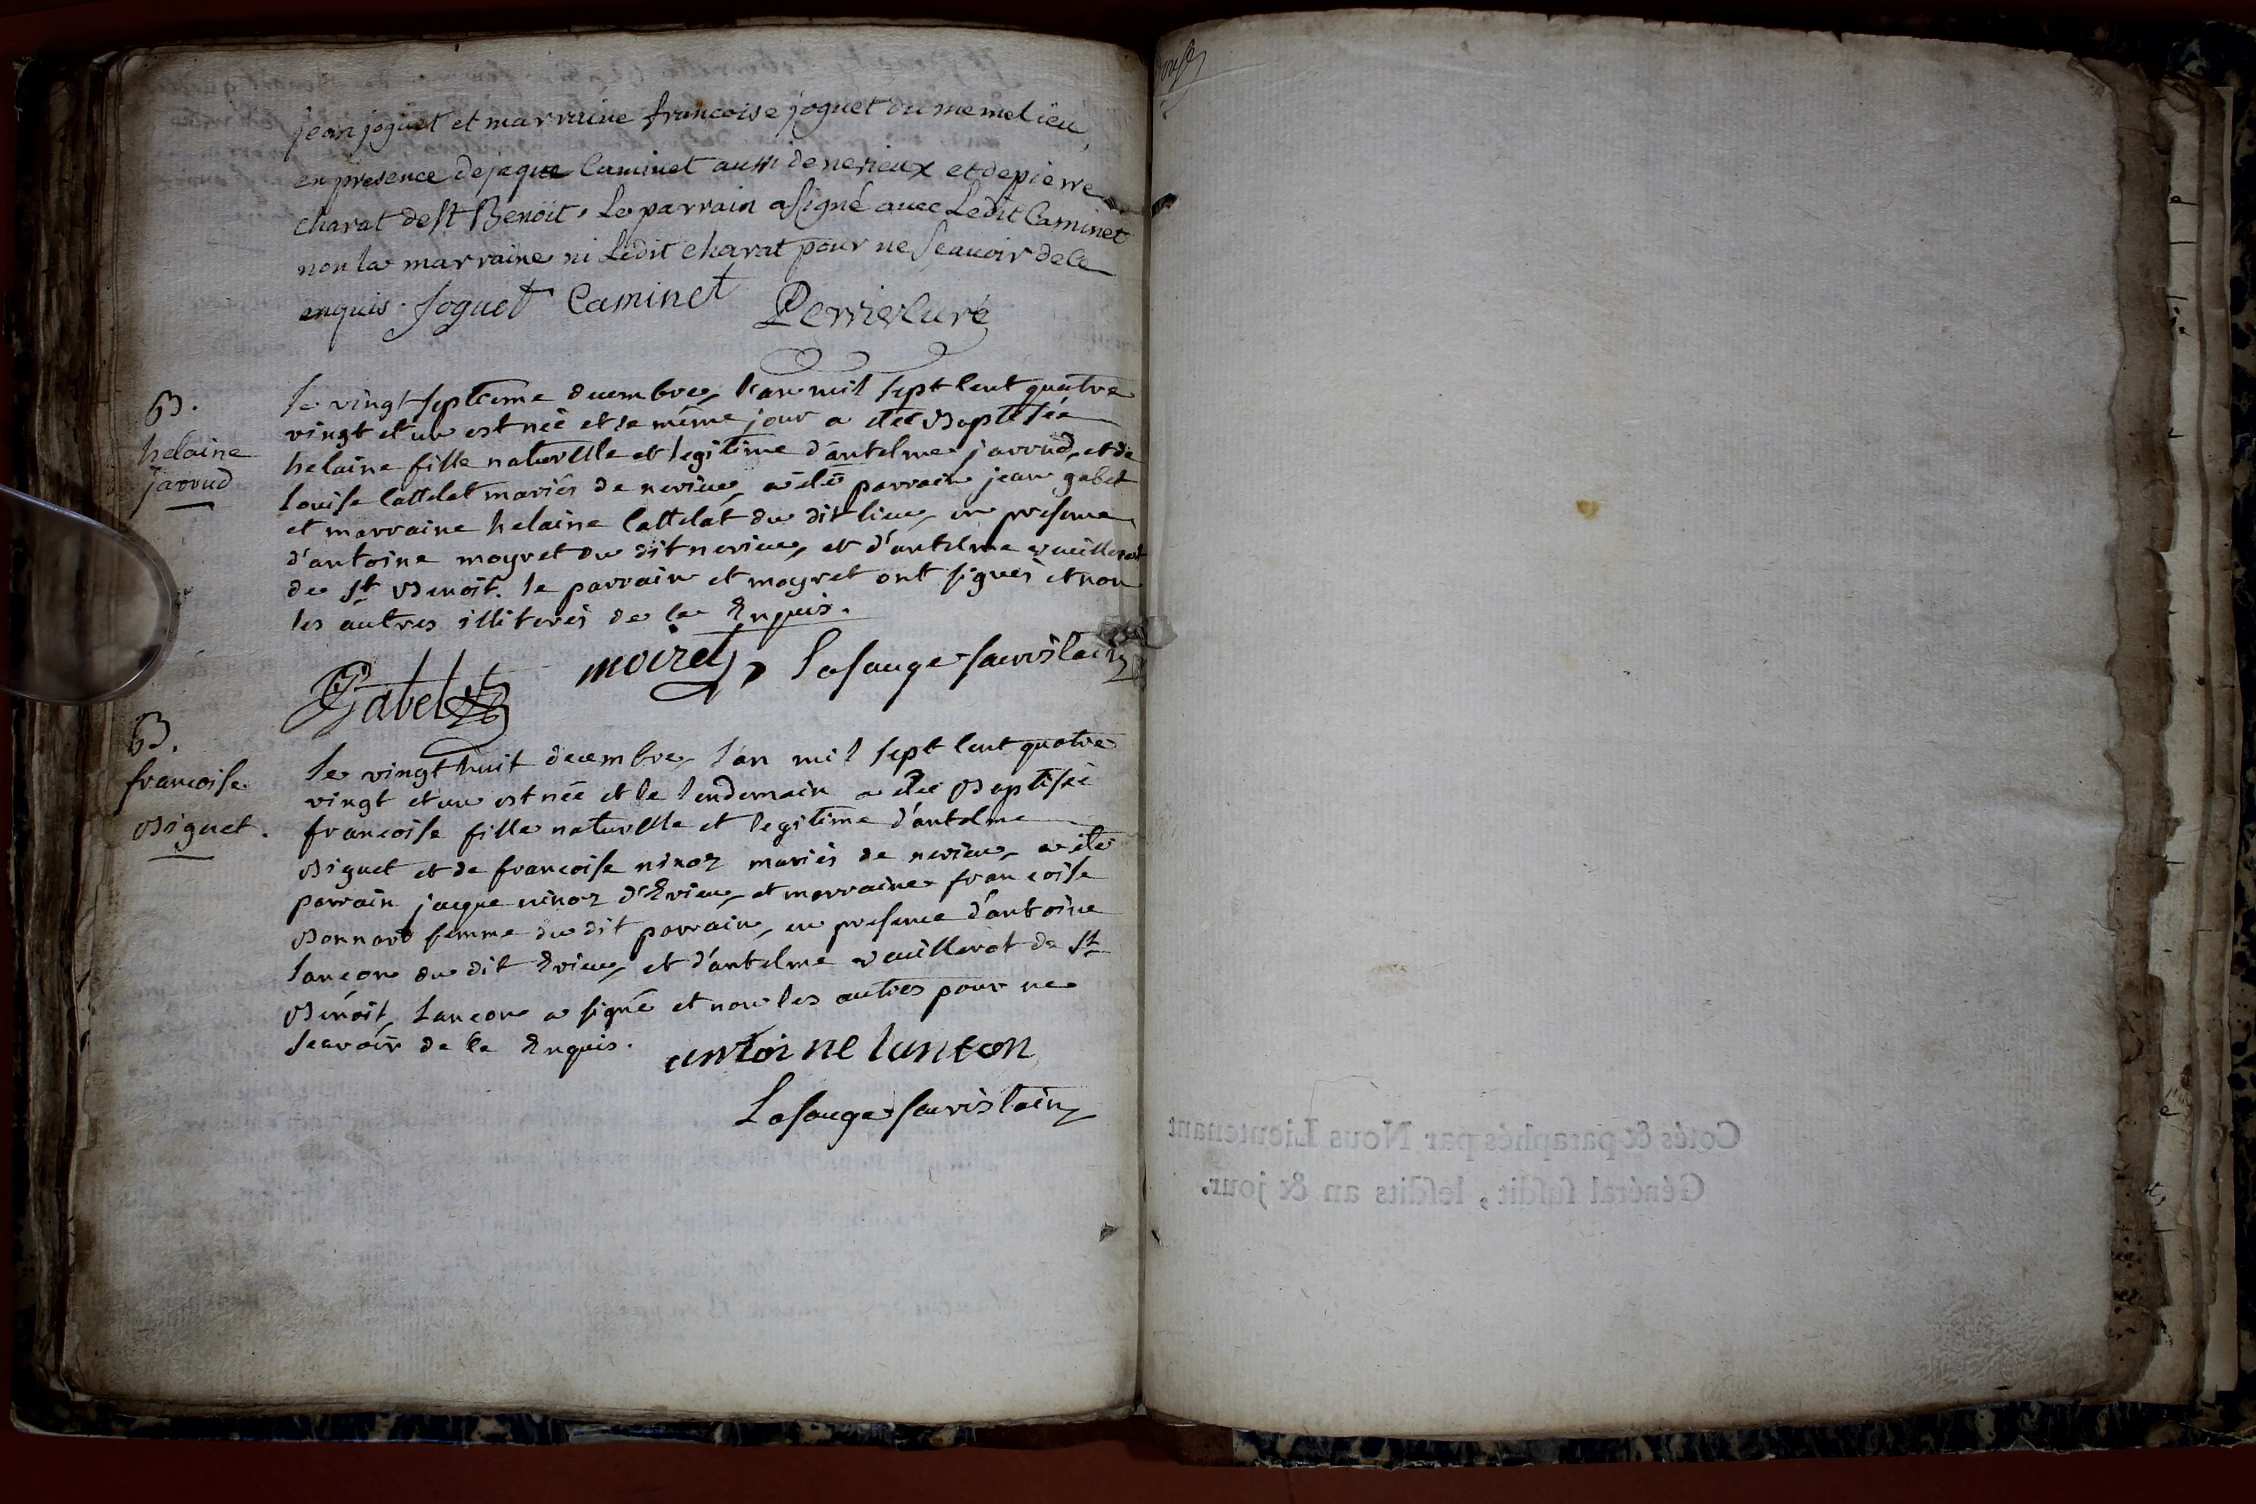 jean joguet et marraine francoise joguet du meme lieu
en presence de jaque Caminet aussi de nerieux et de pierre
charat de st Benoit. Le parrain a signé avec Ledit Caminet
non la marraine ni Ledit charat pour ne sçauoir de ce
enquis. Joguet Caminet Perrier Curé
B.
helaine
jarrud
le vingt septieme decembre, l'an mil sept cent quatre
vingt et un est née et le même jour a eté Baptisée
helaine fille naturelle et legitime d'antelme jarrud, et de
louise cattelat mariés de nerieu, a eté parrain jean gabet
et marraine helaine cattelat du dit lieu, en presence
d'antoine moyret du dit nerieu, et d'antelme vuillerot
de St Benoit. le parrain et moyret ont signés et non
les autres illiterés de ce Enquis.
Gabet moiret, Lasauge sacristain
B.
francoise
Biguet.
le vingt huit decembre, l'an mil sept cent quatre
vingt et un est née et le lendemain a eté Baptisée
francoise fille naturelle et legitime d'antelme
Biguet et de francoise ninoz mariés de nerieu, a eté
parrain jacque ninoz d'Evieu, et marraine francoise
Bonnard femme du dit parrain, en presence d'antoine
lancon du dit Evieu, et d'antelme vuillerot de St
Benoit, lancon a signé et non les autres pour ne
scavoir de ce Enquis. antoine lancon
Lasauge sacristain
Cotés & paraphés par Nous Lieutenant
Général susdit, lesdits an & jour.